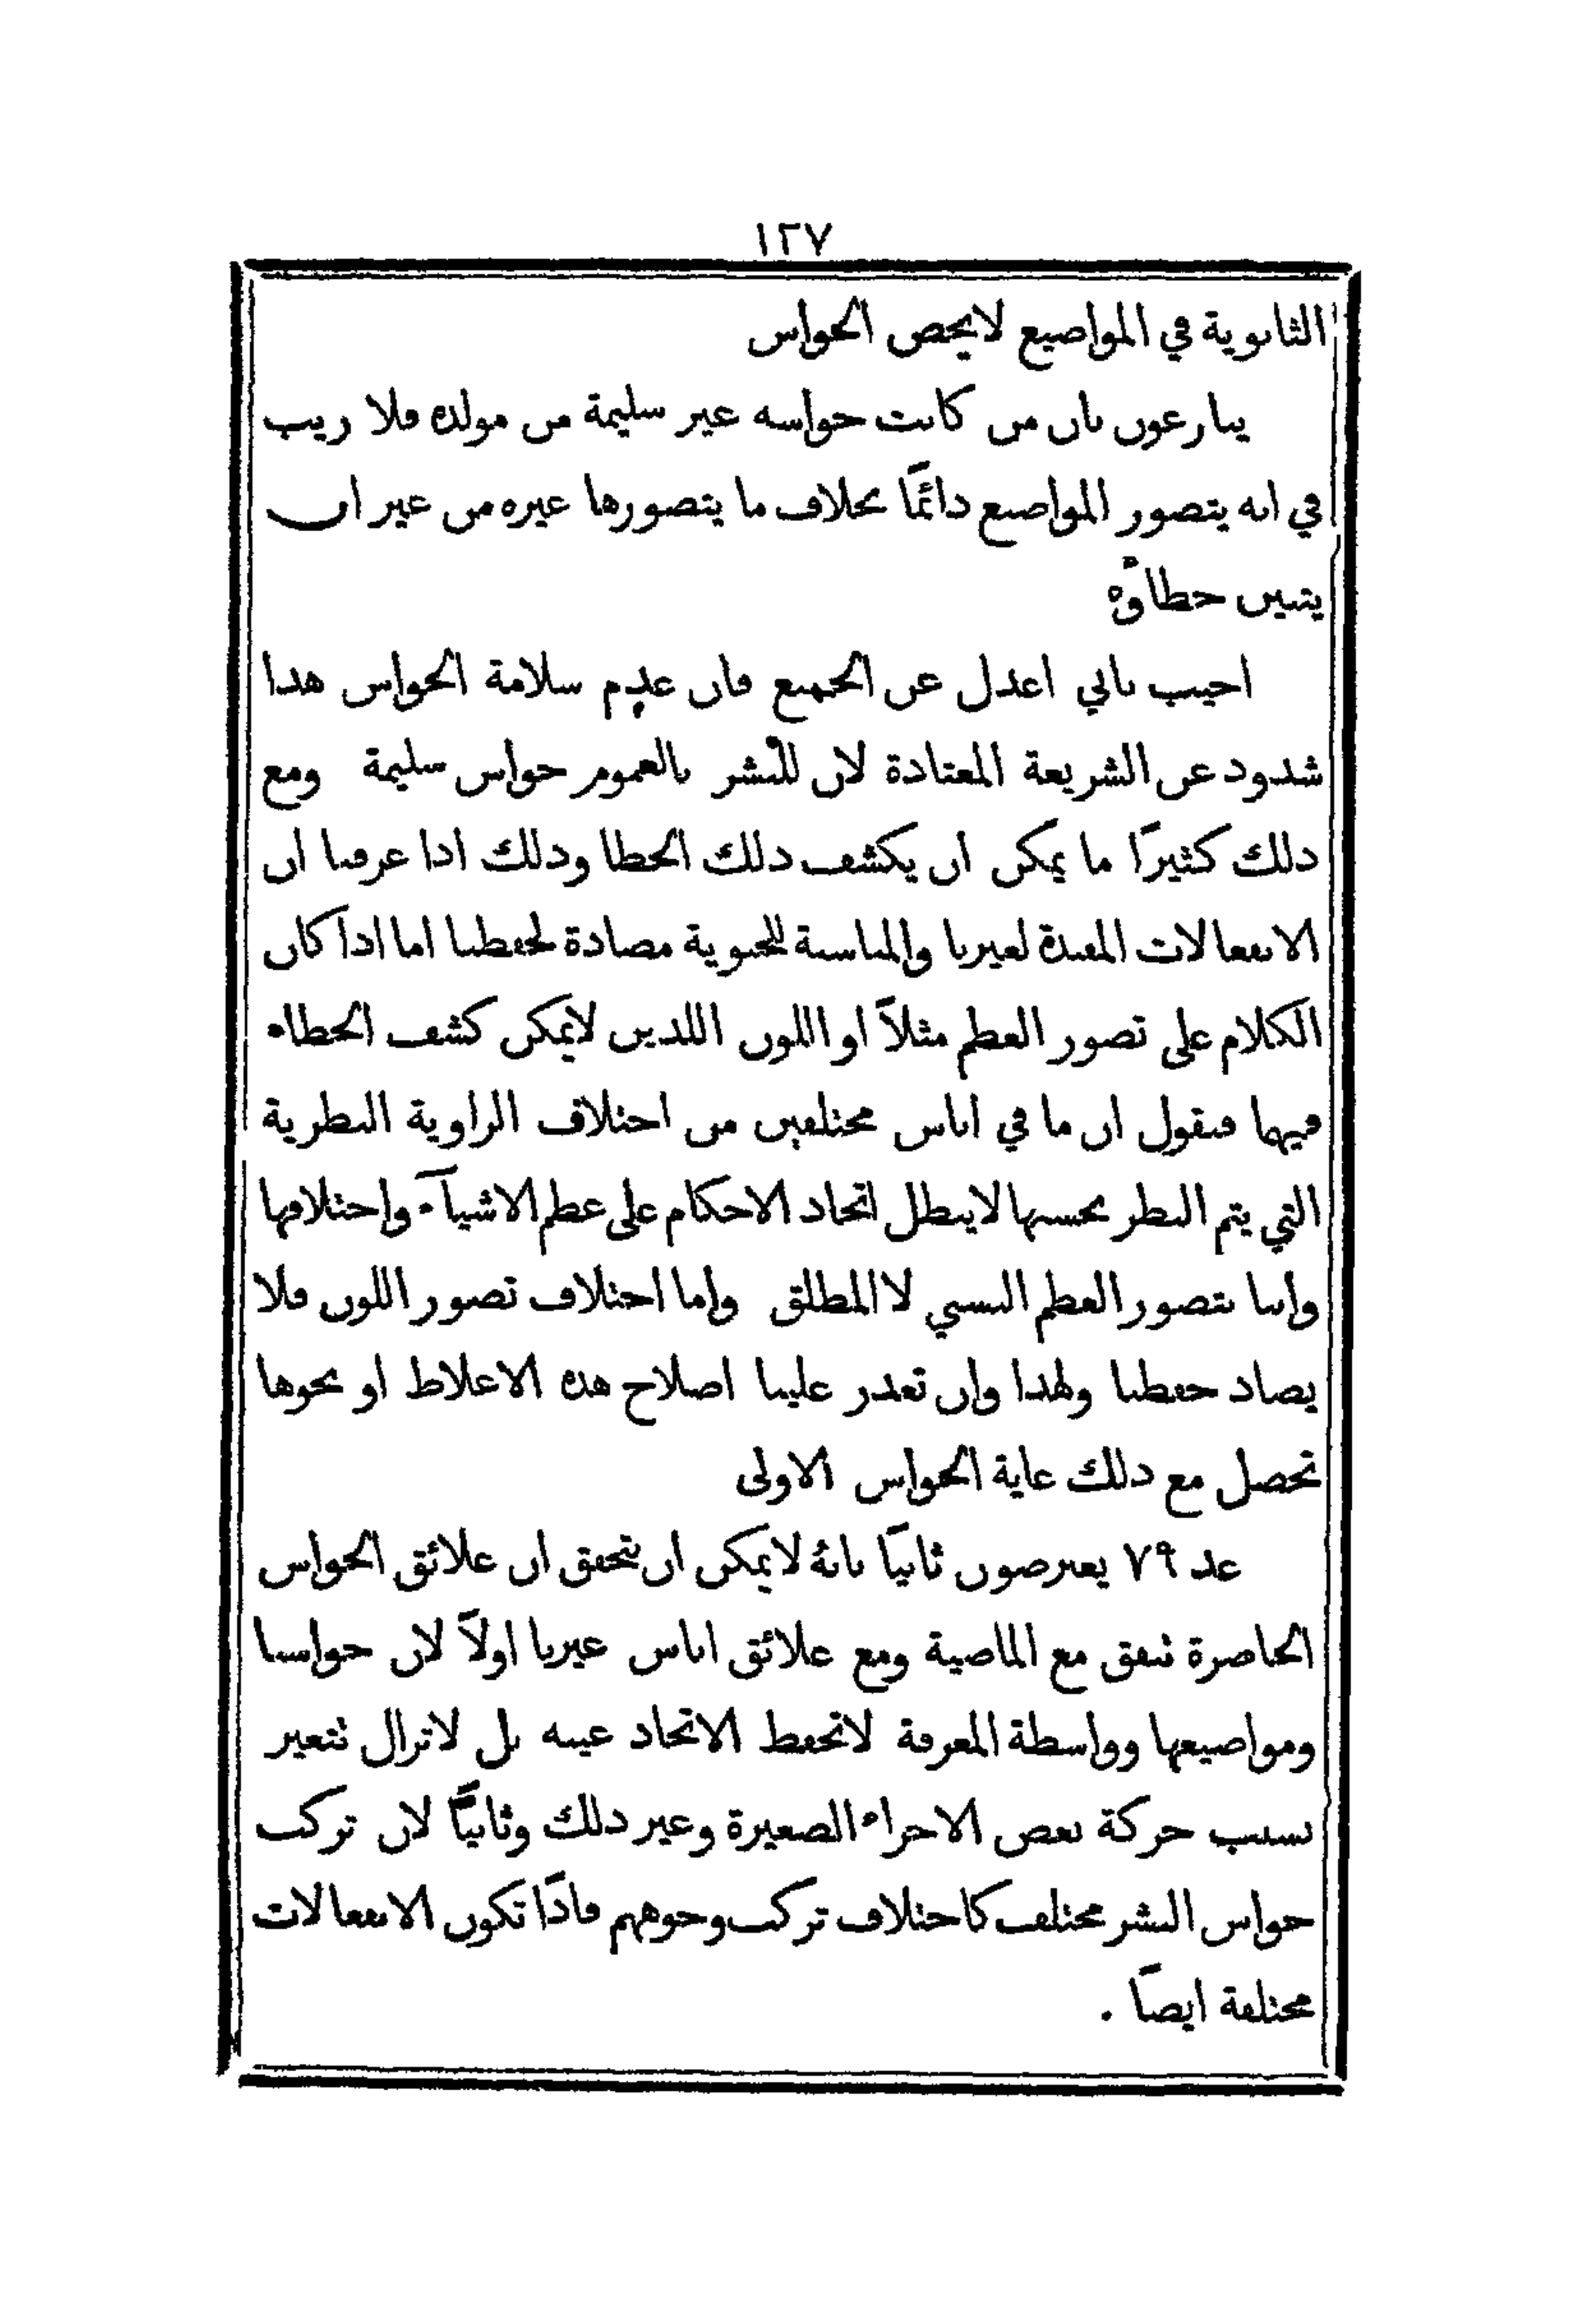 ١٢٧
الثانوية في المواضيع لا يخص الحواس
ينازعون بان من كانت حواسه غير سليمة من مولده فلا ريب
في انه يتصور المواضيع دائمًا بخلاف ما يتصورها غيره من غير ان
يتبين خطاوّه
اجيب باني اعدل عن الجميع فان عدم سلامة الحواس هذا
شذوذ عن الشريعة المعتادة لان للبشر بالعموم حواس سليمة ومع
ذلك كثيرًا ما يمكن ان يكشف ذلك الخطا وذلك اذا عرفنا ان
الانفعالات المفيدة لغيرنا والمناسبة للحيوية مضادة لحفظنا اما اذا كان
الكلام على تصور العظم مثلاً او اللون اللذين لا يمكن كشف الخطاء
فيهما فنقول ان ما في اناس مختلفين من اختلاف الزاوية النظرية
التي يتم النظر بحسبها لا يبطل اتحاد الاحكام على عظم الاشيآء واختلافها
واننا نتصور العظم النسبي لا المطلق واما اختلاف تصور اللون فلا
يضاد حفظنا ولهذا وان تعذر علينا اصلاح هذه الاغلاط او نحوها
تحصل مع ذلك غاية الحواس الاولى
عد ٧٩ يعترضون ثانيًا بانهُ لا يمكن ان نتحقق ان علائق الحواس
الحاضرة تتفق مع الماضية ومع علائق اناس غيرنا اولاً لان حواسنا
ومواضيعها وواسطة المعرفة لا تحفظ الاتحاد عينه بل لا تزال تتغير
بسبب حركة بعض الاجزاء الصغيرة وغير ذلك وثانيًا لان تركب
حواس البشر مختلف كاختلاف تركب وجوههم فاذًا تكون الانفعالات
مختلفة ايضًا .